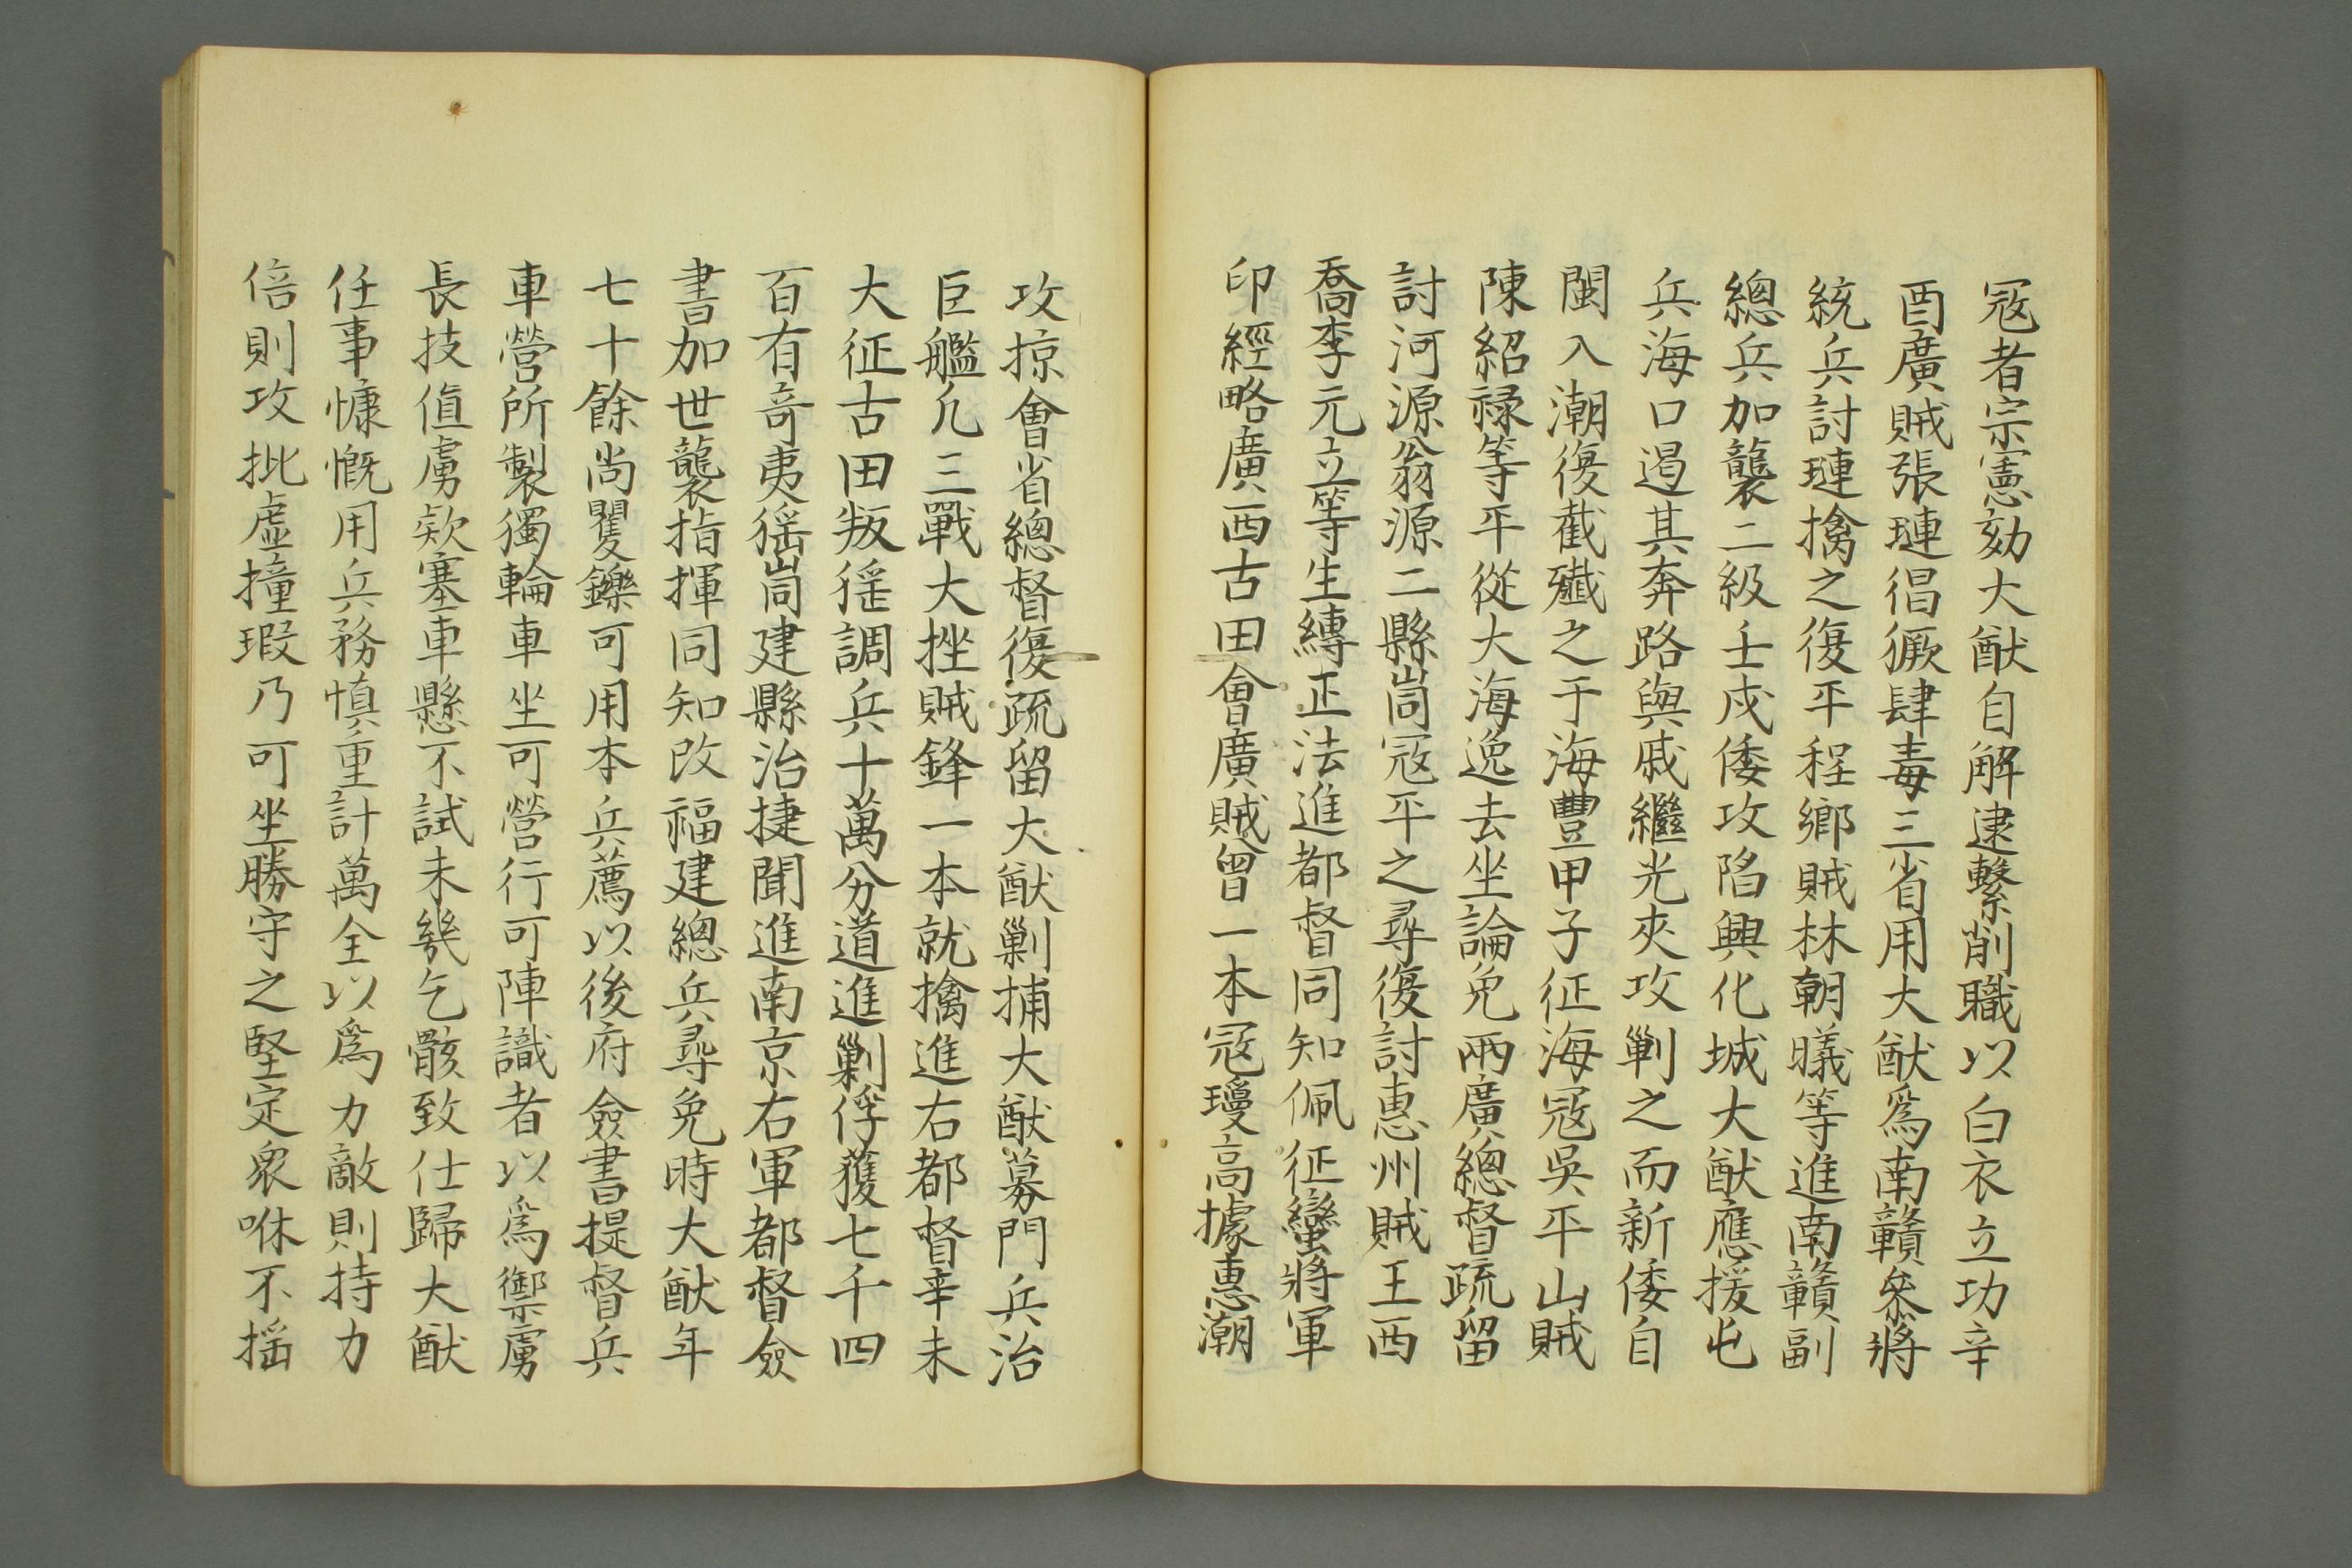 冦者宗憲劾大猷自解逮繫削職以白衣立功辛
酉廣賊張璉倡獗肆毒三省用大猷爲南贛叅將
統兵討璉擒之復平程鄉賊林朝曦等進南贛副
總兵加襲二級壬戍倭攻陷興化城大猷應援屯
兵海口遏其奔路與戚繼光夾攻剿之而新倭自
閩入潮復截殲之于海豐甲子征海冦吳平山賊
陳紹祿等平從大海逸去坐論免兩廣總督疏留
討河源翁源二縣峝冦平之尋復討惠州賊王西
喬李元立等生縛正法進都督同知佩征蠻將軍
印經略廣西古田會廣賊曾一本冦瓊高據惠潮
攻掠會省總督復疏留大猷剿捕大猷募門兵治
巨艦凢三戰大挫賊鋒一本就擒進右都督辛未
大征古田叛猺調兵十萬分道進剿俘獲七千四
百有奇夷猺峝建縣治捷聞進南京右軍都督僉
書加世襲指揮同知改福建總兵尋免時大猷年
七十餘尚矍鑠可用本兵薦以後府僉書提督兵
車營所製獨輪車坐可營行可陣識者以爲禦虜
長技值虜欵塞車懸不試未幾乞骸致仕歸大猷
任事慷慨用兵務慎重計萬全以爲力敵則持力
倍則攻批虛撞瑕乃可坐勝守之堅定衆咻不搖